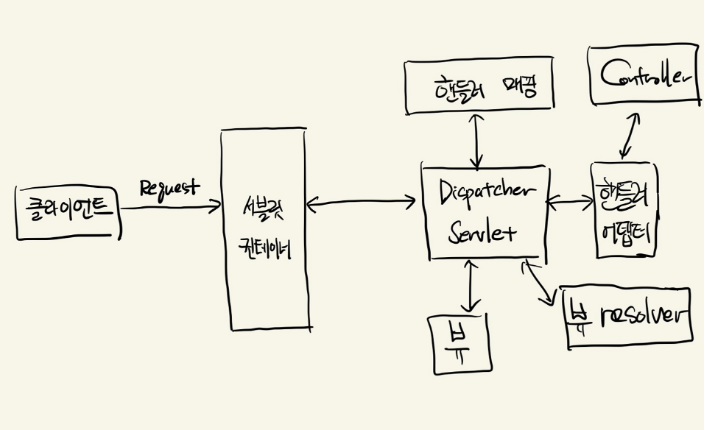 클라이언트
Request
서블릿
컨테이너
핸들러 매핑
Controller
Dispatcher
Servlet
핸들러
어뎁터
뷰
뷰 resolver